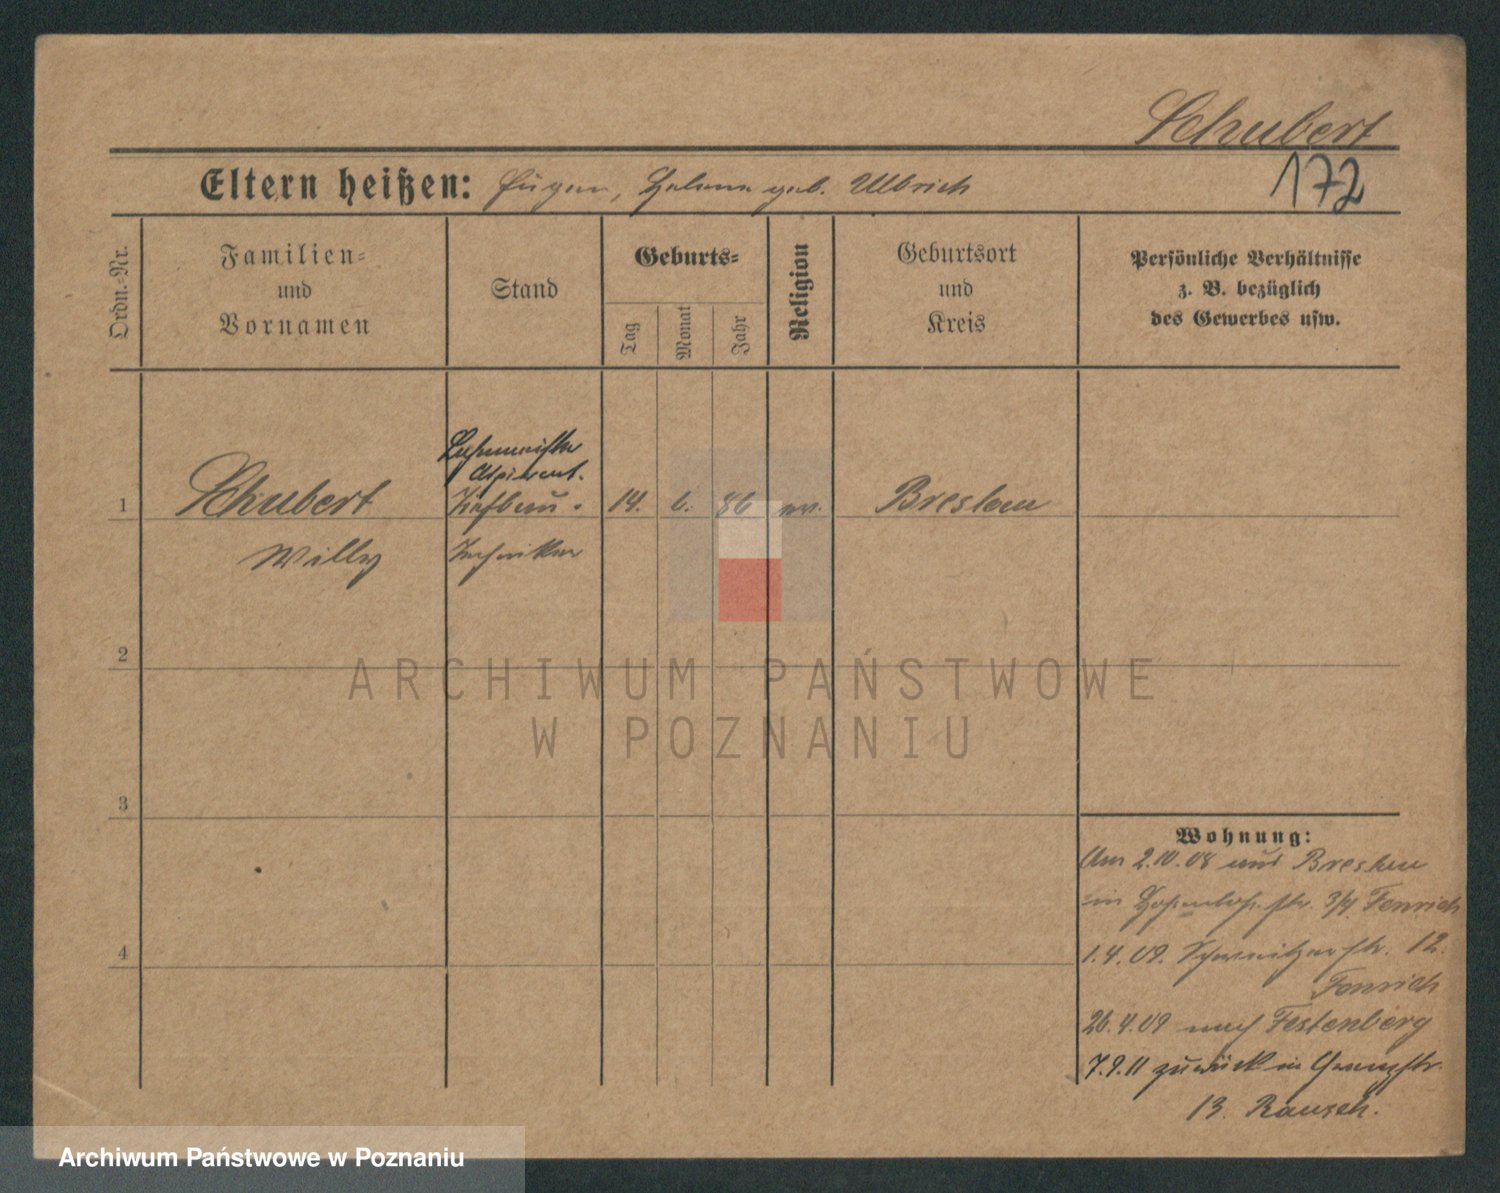 Schubert
172
Eltern heißen: Eugen, Helene geb. Ulbrich
Ordn.-Nr.
Familien-
und
Vornamen
Stand
Geburts-
Tag
Monat
Jahr
Religion
Geburtsort
und
Kreis
Persönliche Verhältnisse
z. B. bezüglich
des Gewerbes usw.
Bahnmeister
Aspirant.
1 Schubert Tiefbau- 14. 6. 86 ev. Breslau
Willy Techniker
2
3
4
ARCHIWUM PAŃSTWOWE
W POZNANIU
Wohnung:
Am 2.10.08 aus Breslau
in str. 3/4 Fenrich
1.4.09. str. 12.
Fenrich
26.4.09 nach Festenberg
7.9.11 zurück in str.
13. Rausch.
Archiwum Państwowe w Poznaniu